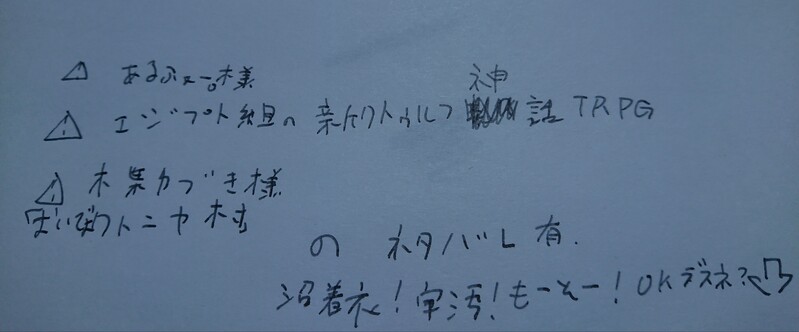 ⚠ あるふぇー。様
⚠ エジプト組の新クトゥルフ神話TRPG
⚠ 木集かづき様
クトニヤ村
の ネタバレ有.
沼着衣!字汚!もーそー!OKデスネ?